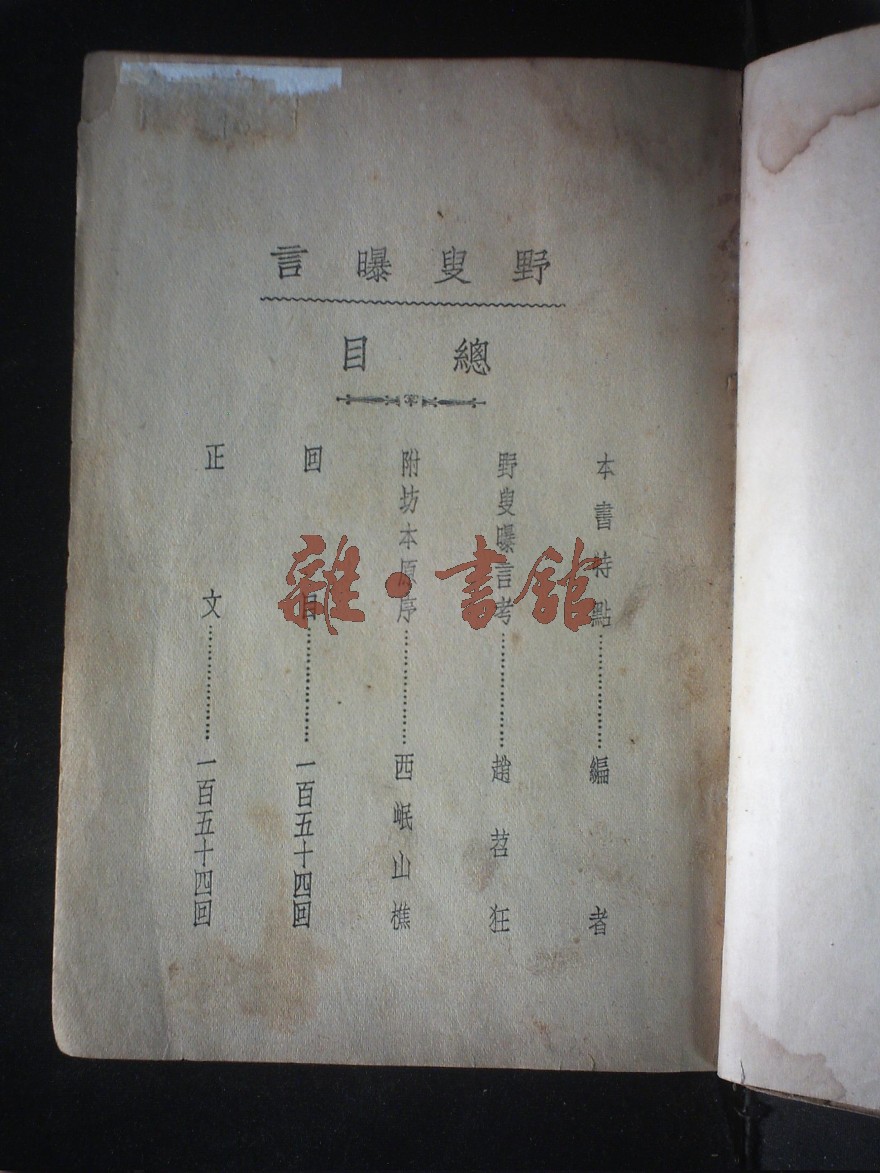 野叟曝言
總目
本書特點………………編者
野叟曝言考………………趙苕狂
附坊本原序………………西岷山樵
回目………………一百五十四回
正文………………一百五十四回
雜·書館